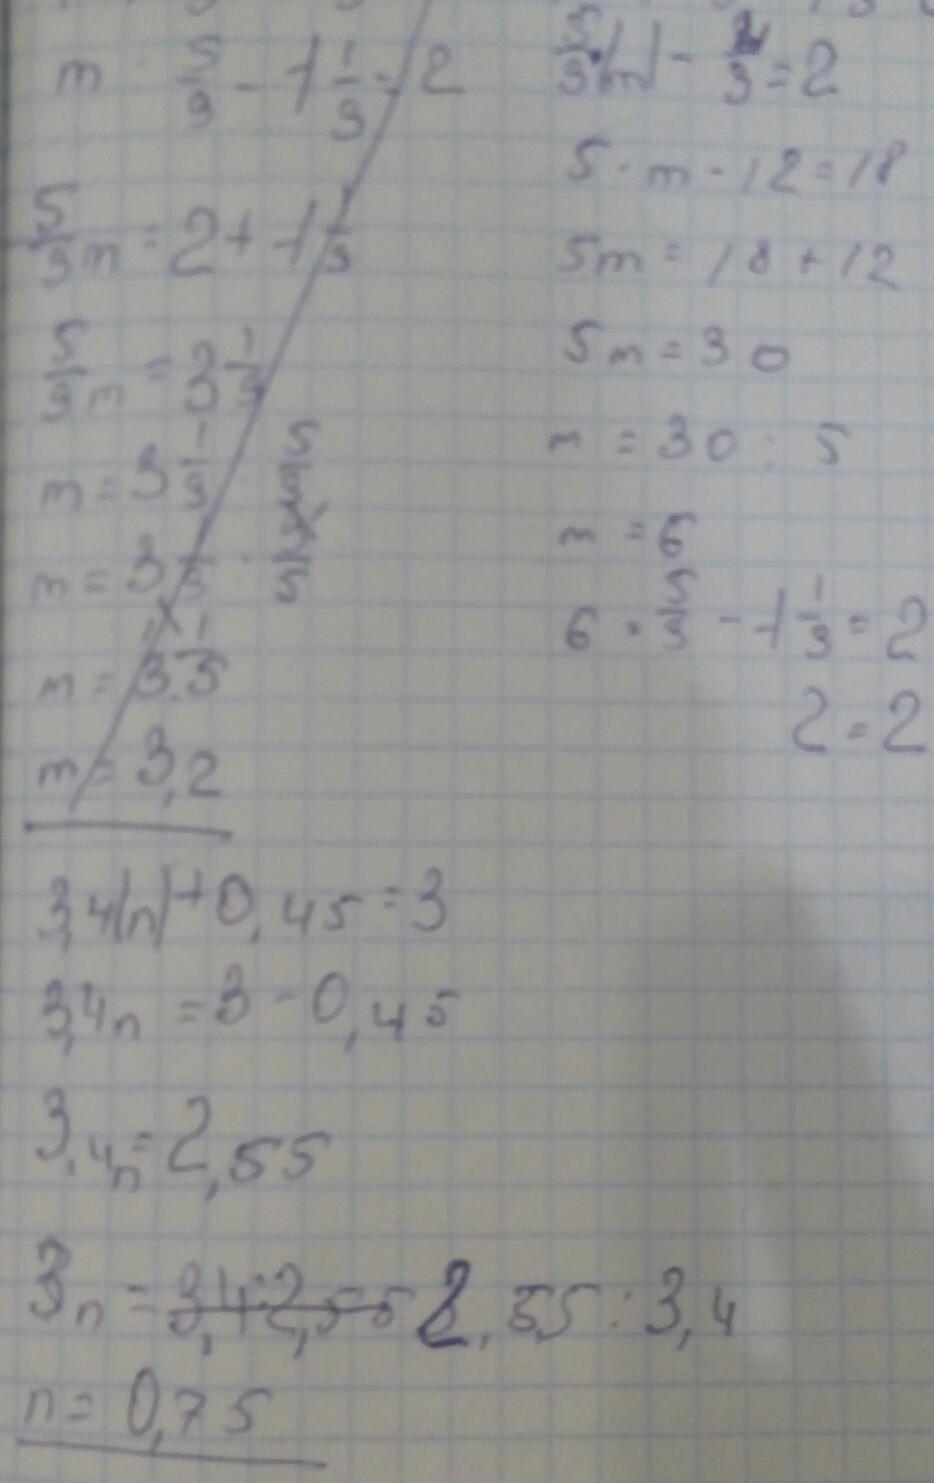 m · 5/9 - 1 1/3 = 2
5/9 m = 2 + 1 1/3
5/9 m = 3 1/3
m = 3 1/3 : 5/9
m = 3 1/3 · 9/5
m = 3 · 1/5
m = 3,2
5/9 |m| - 4/3 = 2
5 · m - 12 = 18
5m = 18 + 12
5m = 30
m = 30 : 5
m = 6
6 · 5/9 - 1 1/3 = 2
2 = 2
3,4|n| + 0,45 = 3
3,4n = 3 - 0,45
3,4n = 2,55
3n = 3,4 : 2,55 2,55 : 3,4
n = 0,75